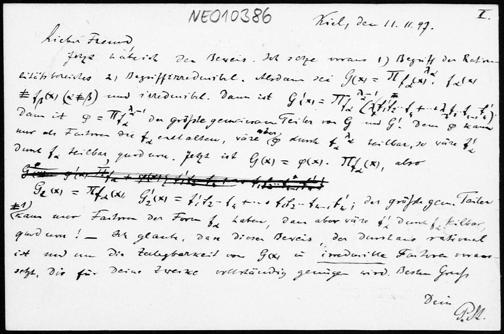 NE010386
Kiel, den 11.11.97. I.
Lieber Freund,
Jetzt hätte ich den Beweis. Ich setze voraus 1) Begriff der Ratio-
nalitätsbereiches 2) Begriff irreduzibel. Alsdann sei G(x) = Π f_α(x)^{λ_α}. f_α(x)
≠ f_β(x) (α≠β) und irreduzibel. Dann ist G' =
Dann ist φ = Π f_α^{λ_α-1} der größte gemeinsame Teiler von G und G'. Denn φ kann
nur als Factoren die f_α enthalten, wäre aber φ durch f_α^{λ_α} teilbar, so wäre f_α'
durch f_α teilbar, quod um. Jetzt ist G(x) = φ(x). Π f_α(x), also
G_2(x) = Π f_α(x), G_2'(x) = der größte gem. Teiler
kann nur Factoren der Form f_α haben, dann aber wäre f_α' durch f_α teilbar,
quod um! – Ich glaube, dass dieser Beweis, der durchaus rational
ist und nur die Zerlegbarkeit von G(x) in irreduzible Factoren voraus-
setzt, Dir für Deine Zwecke vollständig genügen wird. Besten Gruß
Dein
P. St.